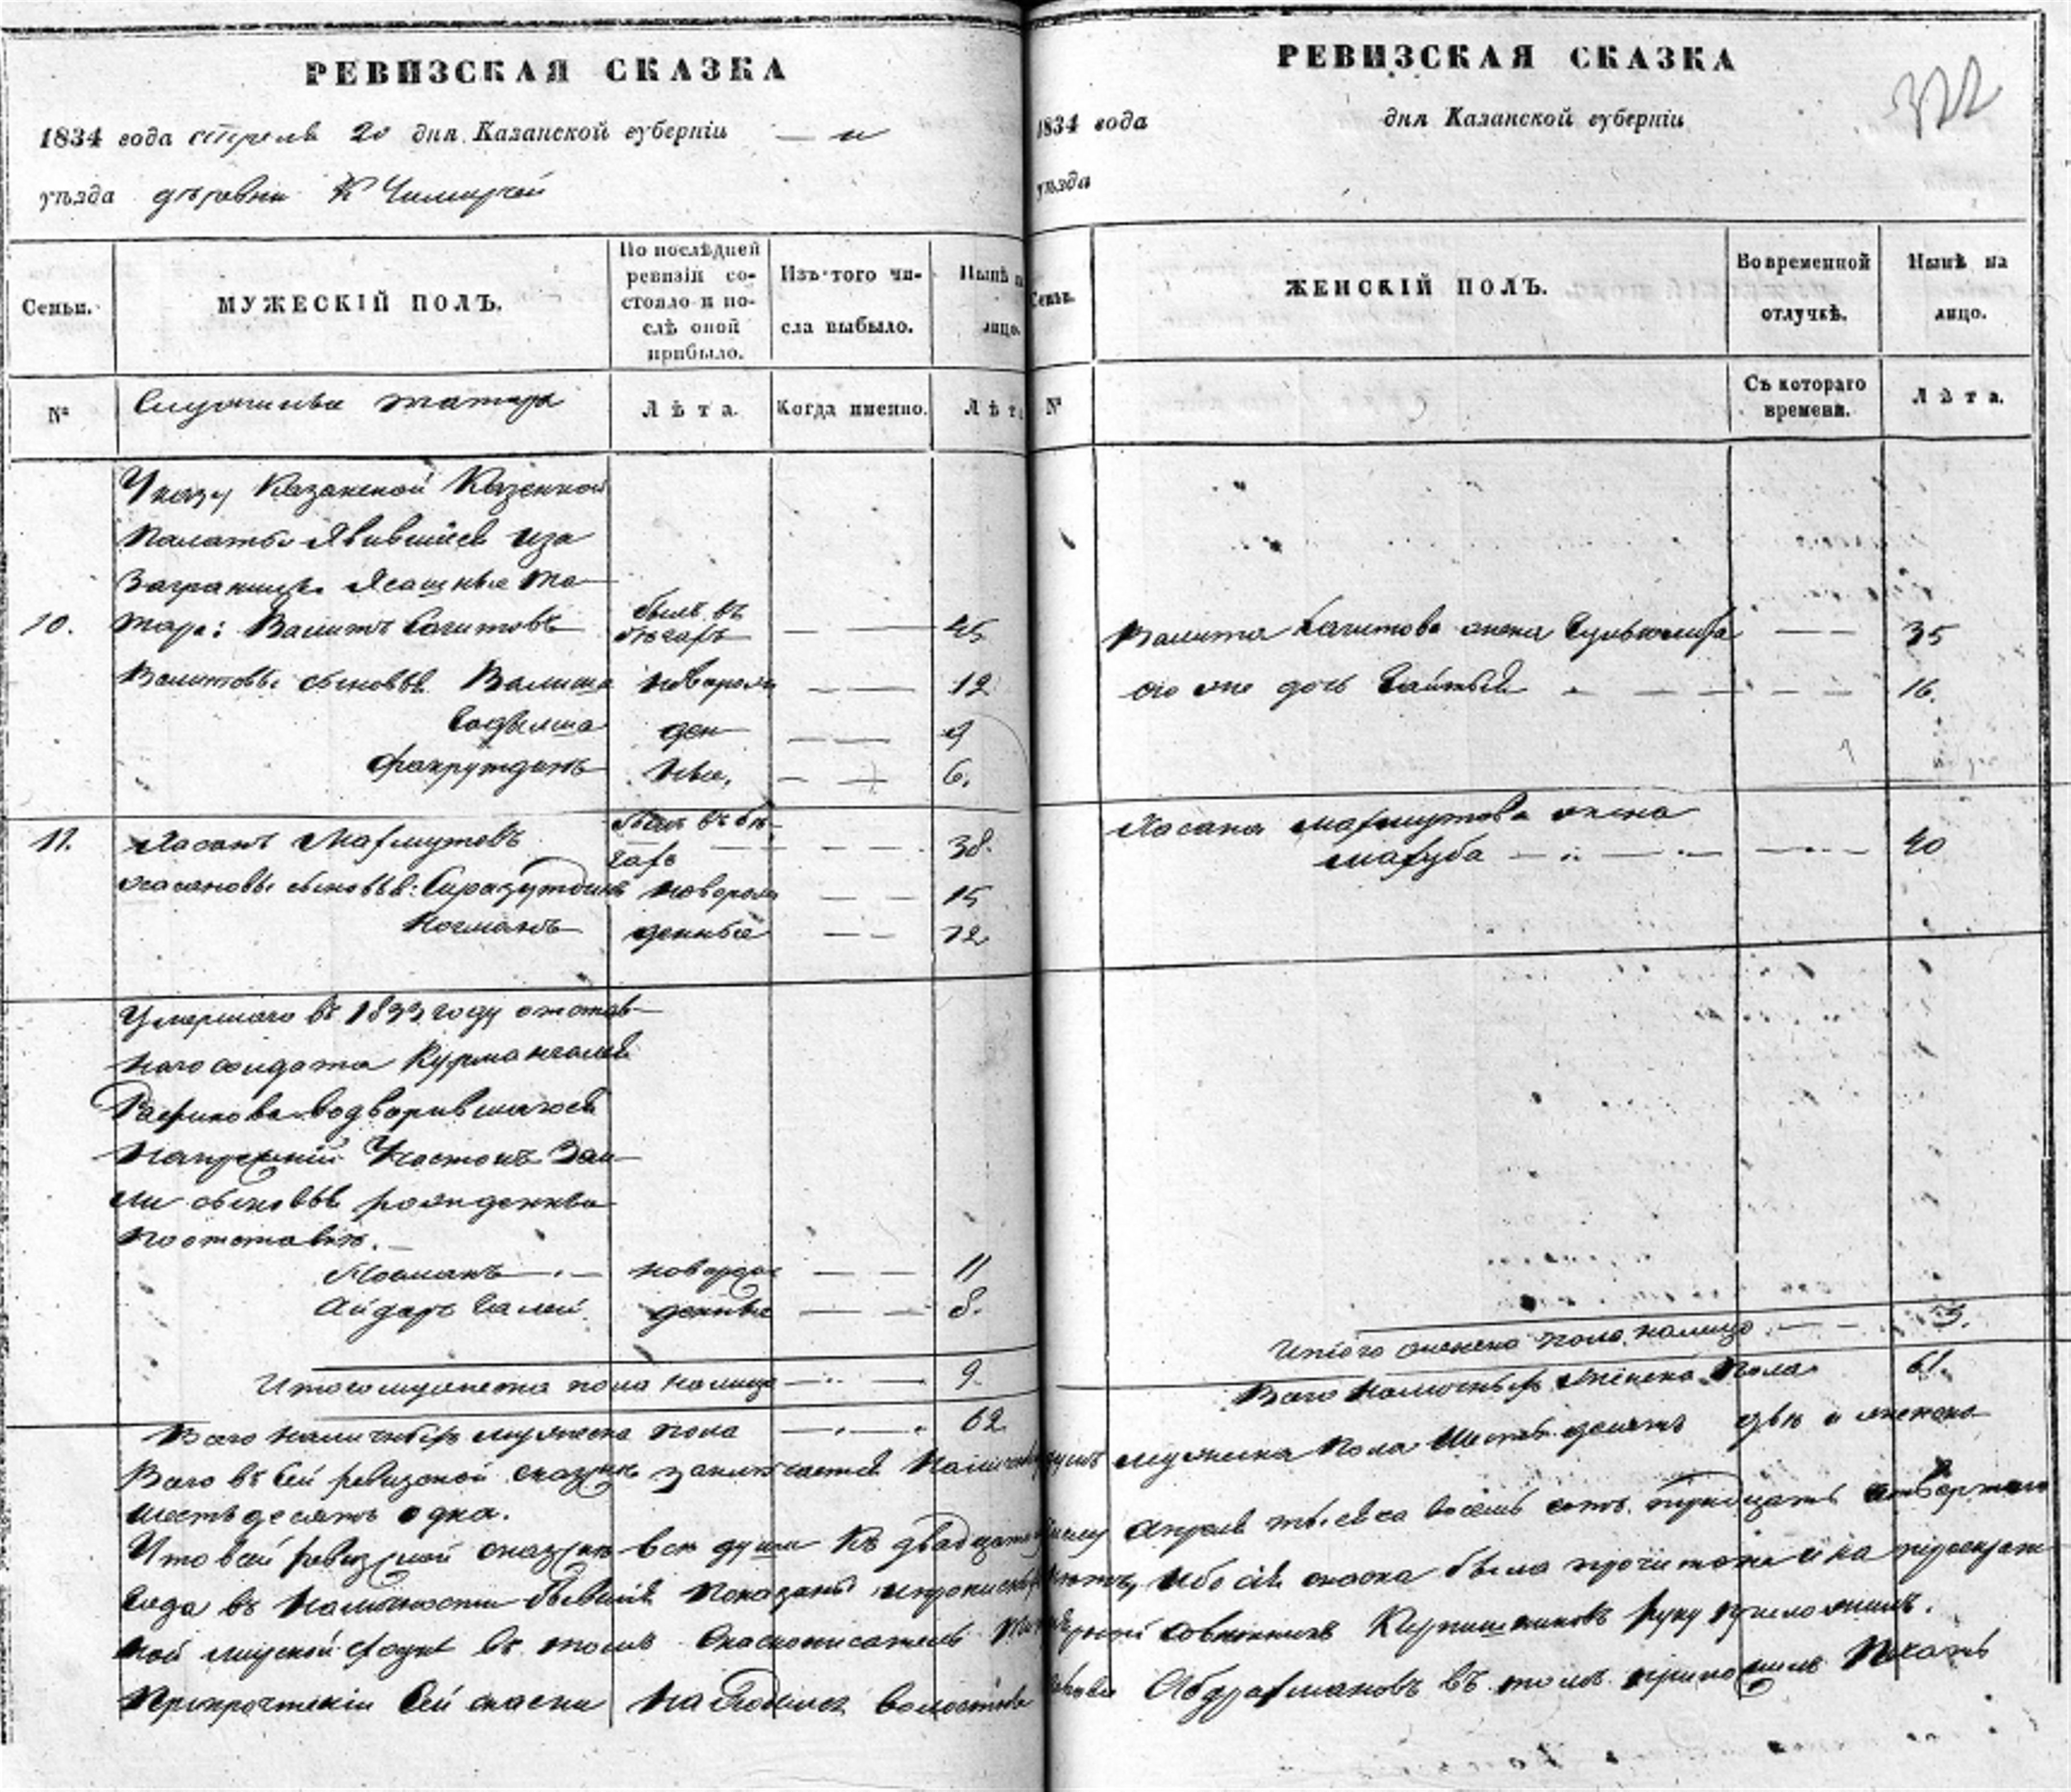 РЕВИЗСКАЯ СКАЗКА
1834 года Апреля 20 дня Казанской губерніи — и
уѣзда деревни Чипчугей
Семьи.
МУЖЕСКІЙ ПОЛЪ.
По послѣдней
ревизіи со-
стояло и по-
слѣ оной
прибыло.
Изъ того чи-
сла выбыло.
Нынѣ на
лицо.
№
Служилые татара
Лѣта.
Когда именно.
Лѣта
Указу Казанской Казенной
Палаты Явившиеся изъ
Заграницы Ясашные та-
10. тара: Валитъ Сагитовъ былъ въ бѣгахъ — — 45
Валитовы сыновья Валиша новорож — — 12
Садыкша ден — — 9
Фахрутдинъ ные, — — 6.
11. Хасанъ Махмутовъ былъ въ бѣ-гахъ — — 38.
Хасановы сыновья: Сиразутдинъ новорож — — 15
Ногманъ денные — — 12
Умершаго въ 1833 году отстав-
наго солдата Курмангалея
Рафикова водворившагося
На прежній Участокъ Зем-
ли сыновья рожденные
по отставке.
Ногманъ — новорож — — 11
Айдаръ Галей денные — — 8.
Итого мужеска пола налицо — 9
Всего наличныхъ мужеска пола — 62
РЕВИЗСКАЯ СКАЗКА
322
1834 года дня Казанской губерніи
уѣзда
Семьи.
ЖЕНСКІЙ ПОЛЪ.
Во временной
отлучкѣ.
Нынѣ на
лицо.
№
Съ котораго
времени.
Лѣта.
Валита Сагитова жена — — 35
его же дочь — — 16.
Хасана Махмутова жена
Махуба — — 40
Итого женска пола налицо — — 3.
Всего наличныхъ женска Пола 61.
Всего въ сей ревизской сказке заключается Наличныхъ душъ мужеска Пола Шестьдесятъ две и женска
шестьдесятъ одна.
Что въ сей ревизской сказке все души Къ двадцатому числу Апреля тысеча восемь сотъ тридцать четвертаго
года въ наличности бывшія Показаны Ибо сія сказка была прочитана и на
ной мирской сходке въ томъ Сказкописатель Титулярный советникъ Кирпишниковъ руку приложилъ.
При прочтеніи Сей сказки Абдрахмановъ въ томъ приложилъ Печать